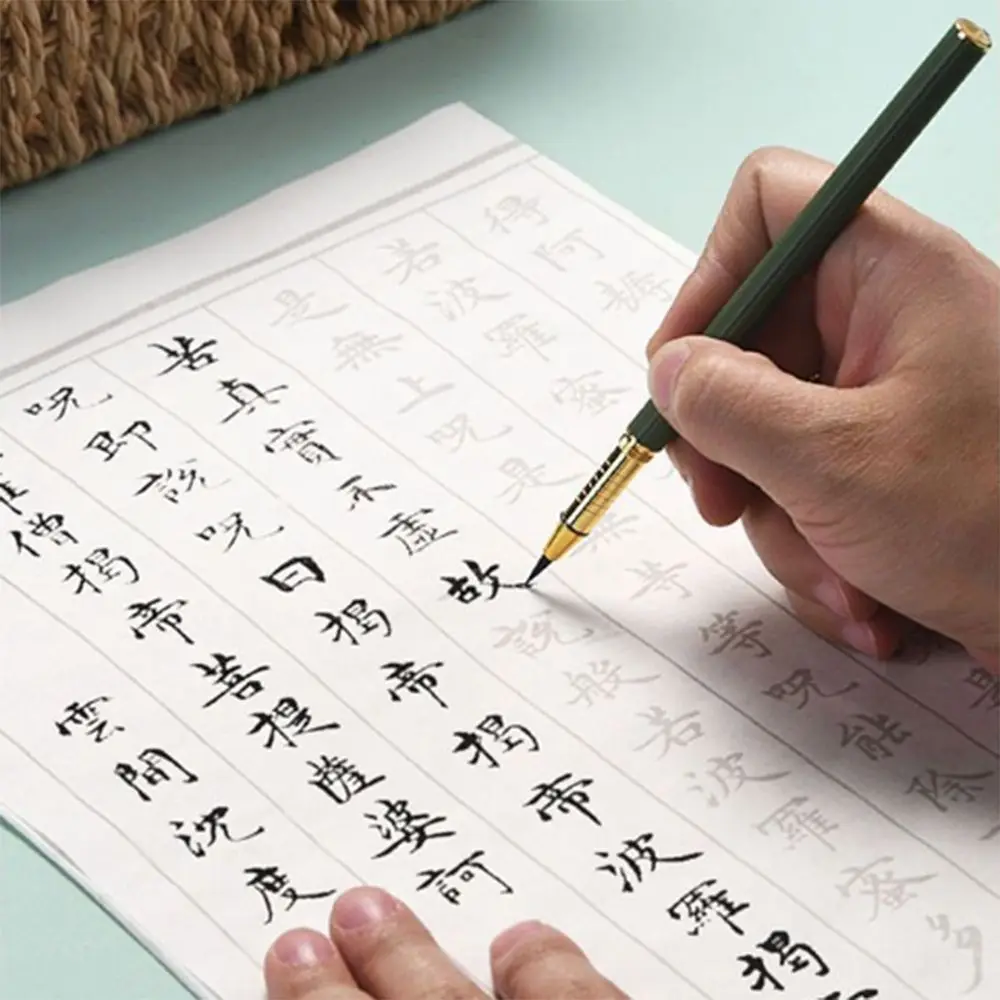 得阿耨
若波羅蜜是
是無上咒是無等等咒能除
苦真實不虛故說般若波羅蜜多
咒即說咒曰揭帝揭帝波羅揭
僧揭帝菩提薩婆訶
雲間沈度